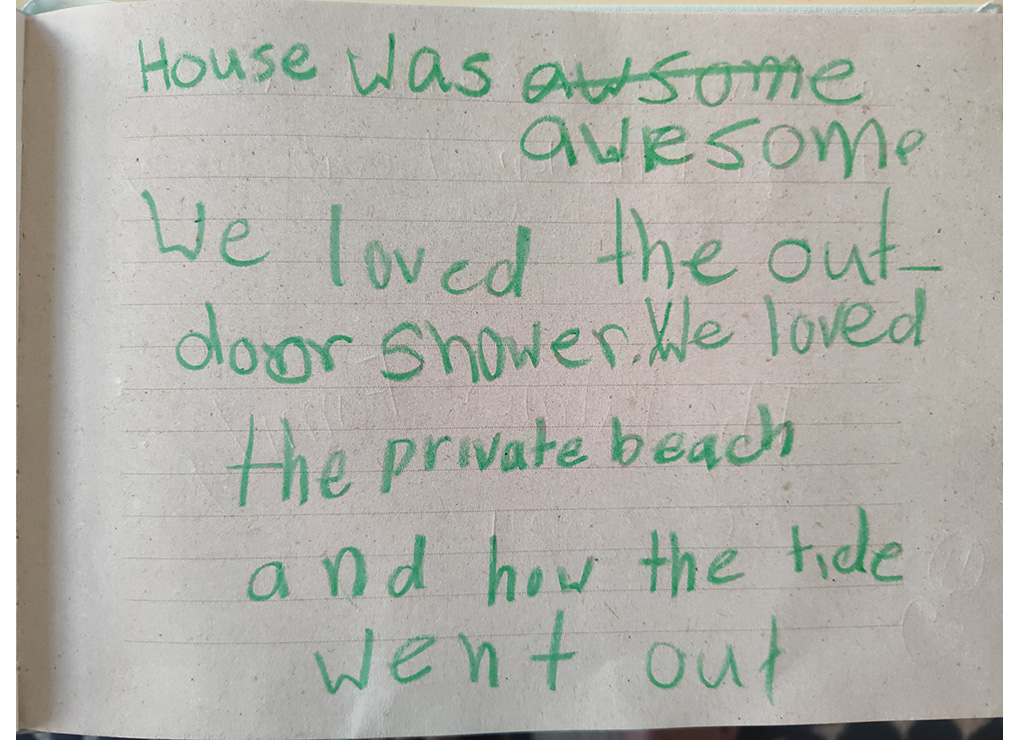 House was awsome
awesome
We loved the out-
door shower. We loved
the private beach
and how the tide
went out